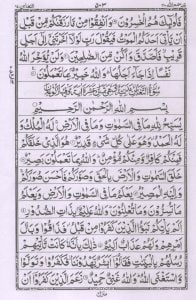 فَاُولٰٓئِكَ هُمُ الْخٰسِرُوْنَ وَاَنْفِقُوْا مِنْ مَّا رَزَقْنٰكُمْ مِّنْ قَبْلِ
اَنْ يَّاْتِيَ اَحَدَكُمُ الْمَوْتُ فَيَقُوْلَ رَبِّ لَوْلَآ اَخَّرْتَنِيْٓ اِلٰٓى اَجَلٍ
قَرِيْبٍ فَاَصَّدَّقَ وَاَكُنْ مِّنَ الصّٰلِحِيْنَ وَلَنْ يُّؤَخِّرَ اللّٰهُ
نَفْسًا اِذَا جَآءَ اَجَلُهَا وَاللّٰهُ خَبِيْرٌۢ بِمَا تَعْمَلُوْنَ
بِسْمِ اللّٰهِ الرَّحْمٰنِ الرَّحِيْمِ
يُسَبِّحُ لِلّٰهِ مَا فِي السَّمٰوٰتِ وَمَا فِي الْاَرْضِ لَهُ الْمُلْكُ وَلَهُ
الْحَمْدُ وَهُوَ عَلٰى كُلِّ شَيْءٍ قَدِيْرٌ هُوَ الَّذِيْ خَلَقَكُمْ
فَمِنْكُمْ كَافِرٌ وَّمِنْكُمْ مُّؤْمِنٌ وَاللّٰهُ بِمَا تَعْمَلُوْنَ بَصِيْرٌ خَلَقَ
السَّمٰوٰتِ وَالْاَرْضَ بِالْحَقِّ وَصَوَّرَكُمْ فَاَحْسَنَ صُوَرَكُمْ
وَاِلَيْهِ الْمَصِيْرُ يَعْلَمُ مَا فِي السَّمٰوٰتِ وَالْاَرْضِ وَيَعْلَمُ
مَا تُسِرُّوْنَ وَمَا تُعْلِنُوْنَ وَاللّٰهُ عَلِيْمٌۢ بِذَاتِ الصُّدُوْرِ
اَلَمْ يَاْتِكُمْ نَبَؤُا الَّذِيْنَ كَفَرُوْا مِنْ قَبْلُ فَذَاقُوْا وَبَالَ
اَمْرِهِمْ وَلَهُمْ عَذَابٌ اَلِيْمٌ ذٰلِكَ بِاَنَّهٗ كَانَتْ تَّاْتِيْهِمْ
رُسُلُهُمْ بِالْبَيِّنٰتِ فَقَالُوْٓا اَبَشَرٌ يَّهْدُوْنَنَا فَكَفَرُوْا وَتَوَلَّوْا
وَّاسْتَغْنَى اللّٰهُ وَاللّٰهُ غَنِيٌّ حَمِيْدٌ زَعَمَ الَّذِيْنَ كَفَرُوْٓا اَنْ